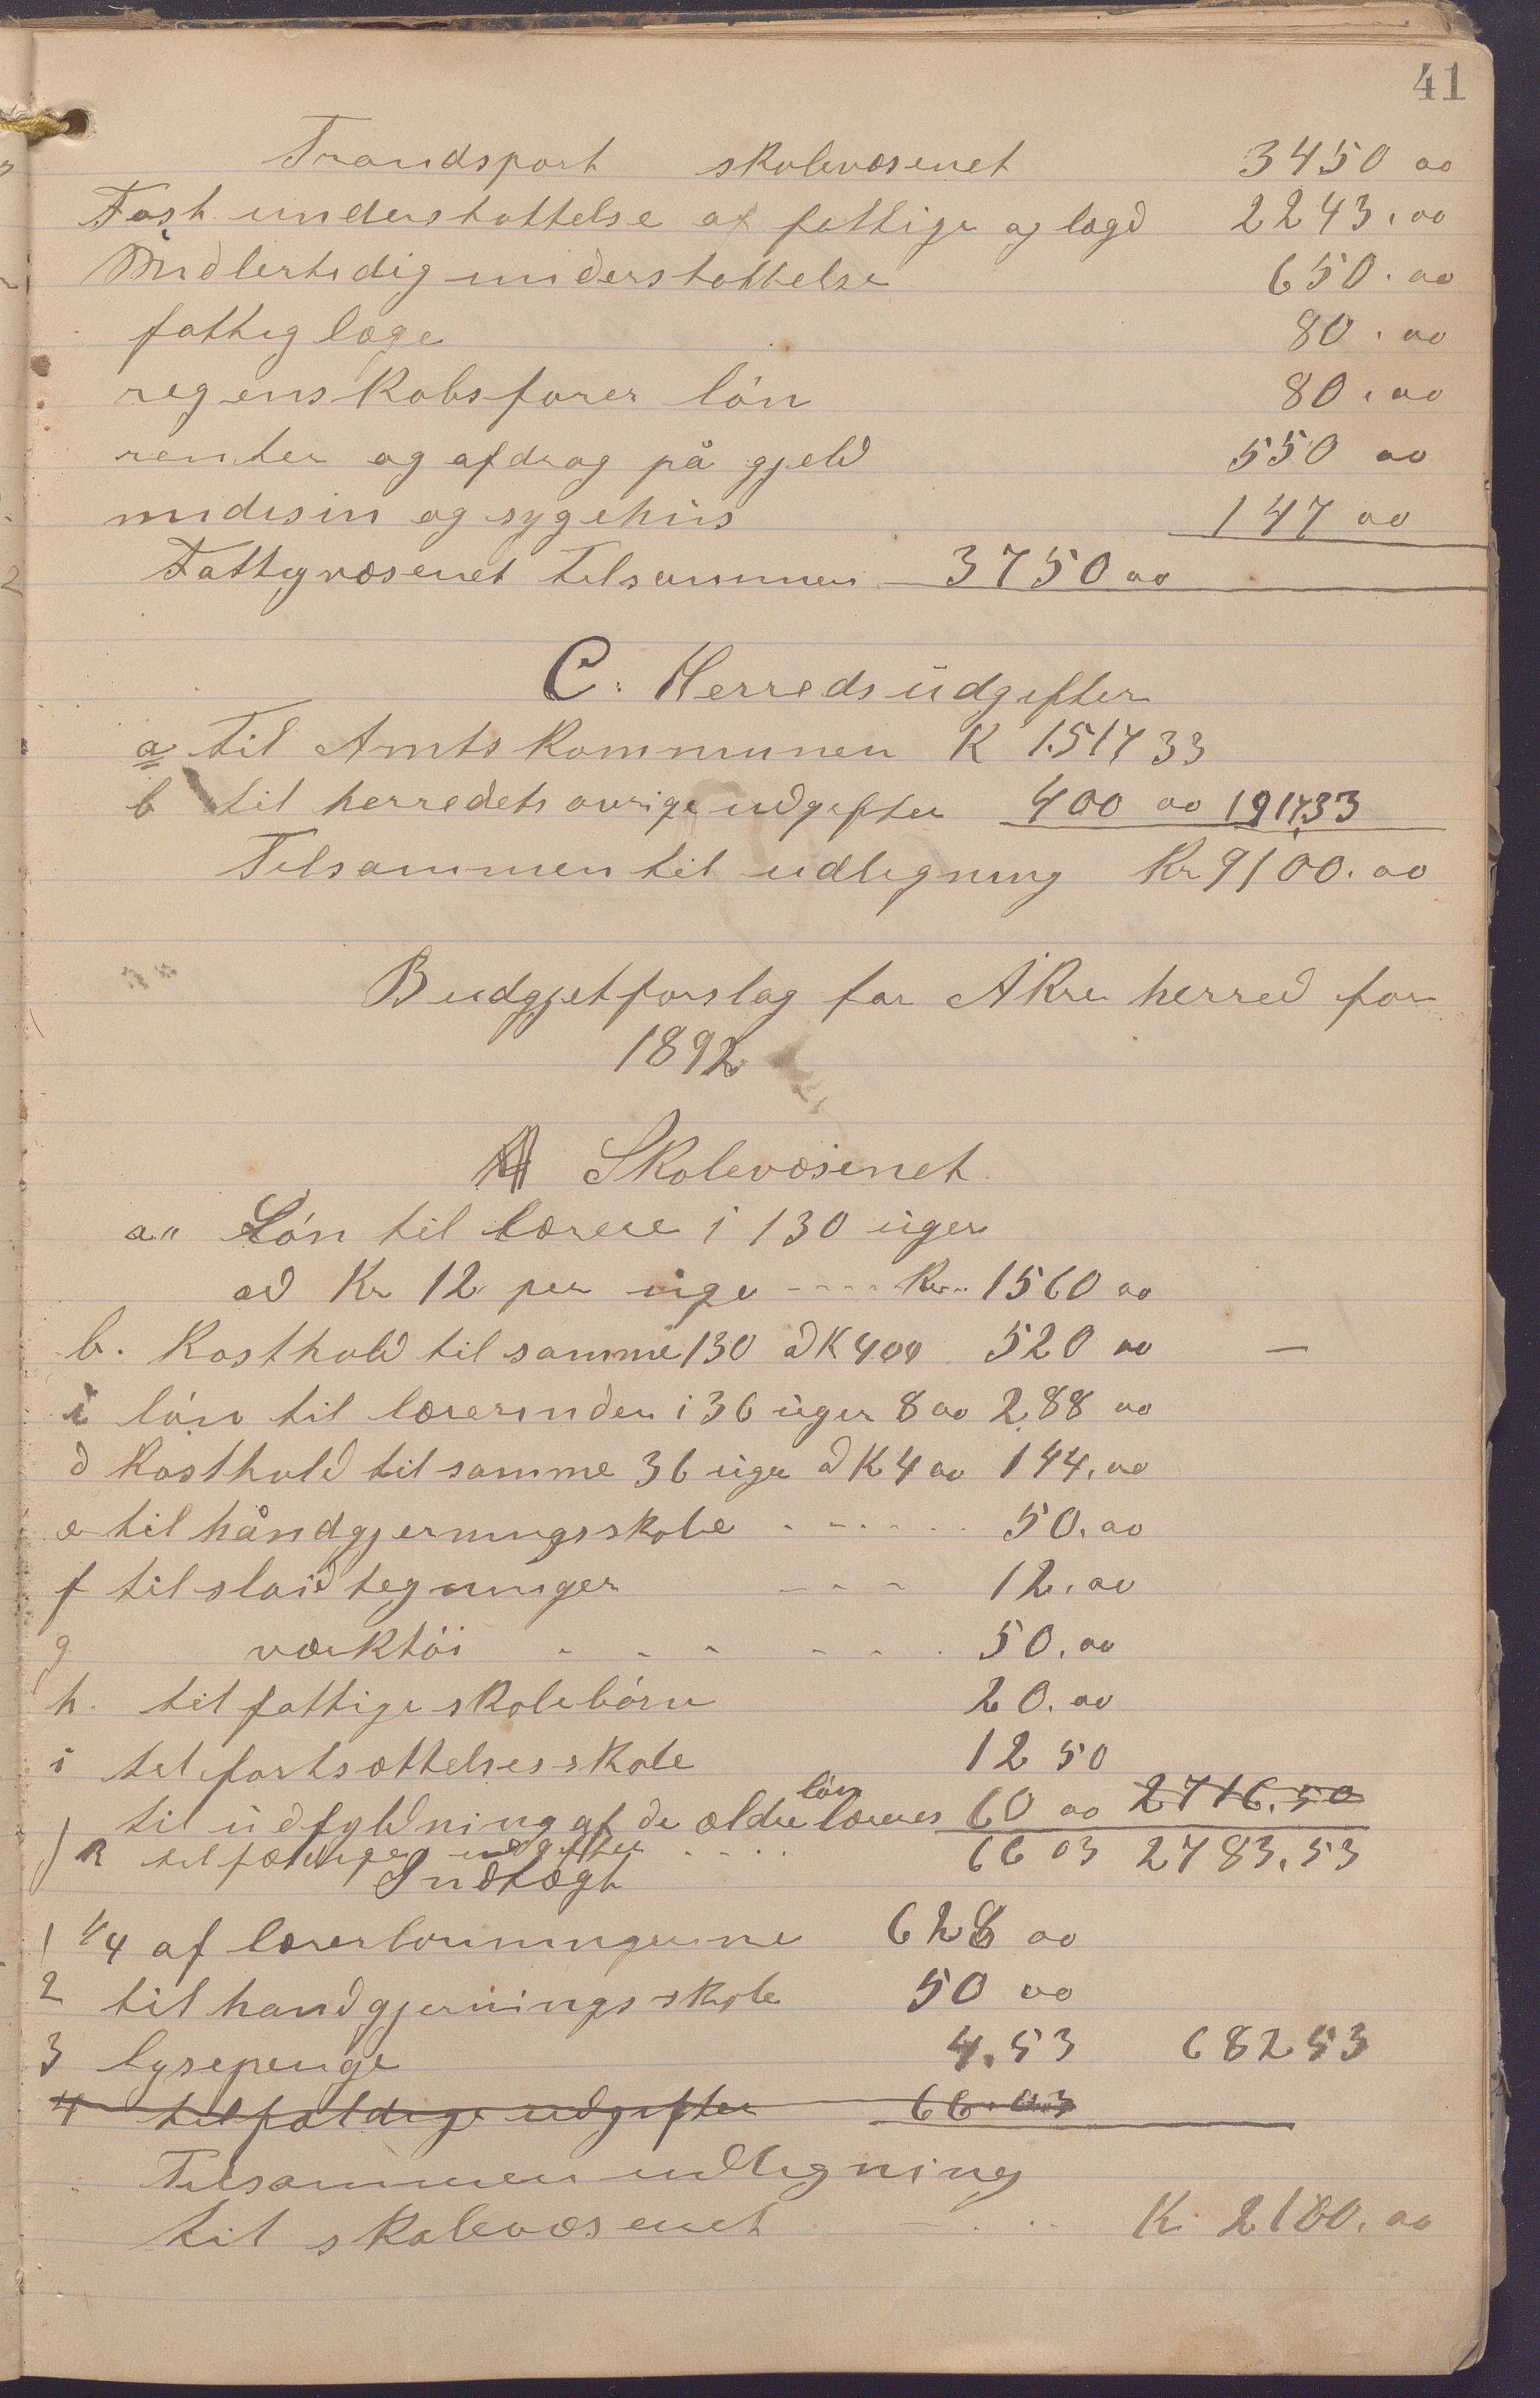 41
Trandsport skolevæsenet 3450 00
Fast understøttelse af fattige og lægd 2243.00
Midlertidig understøttelse 650.00
fattig læge 80.00
regenskabsfører lön 80.00
renter og afdrag på gjeld 550 00
midisin og sygehus 147 00
Fattigvæsenet Tilsammen 3750 00
C. Herredsudgifter
a til Amtskommunen K 1.517 33
b til herredets øvrige udgifter 400 00 1917.33
Tilsammen til udligning Kr 9100.00
Budgjetforslag for Åkre herred for
1892
A Skolevæsenet
a" Lön til lærere i 130 uger
ad Kr 12 per uge ---- Kr. 1560 00
b. Kosthold til samme 130 a K 400 520 00 —
lön til lærerinden i 36 uger 8 00 288 00
d Kosthold til samme 36 uger a K 4 00 144.00
e til håndgjerningsskole - - - - - 50.00
f til sløid tegninger - - - 12.00
g værktöi - - - - - 50.00
h. til fattige skolebörn 20.00
i til fortsættelsesskole 12 50
j til udfyldning af de ældre læreres lön 60 00 2716.50
k tilfældige udgifter - - - - 66 03 2783.53
Indtægt
1 1/4 af lærerlønningerne 628 00
2 til handgjerningsskole 50 00
3 lysepenge 4.53 682 53
4 tilfældige udgifter 66.03
Tilsammen udligning
til skolevæsenet - - - K. 2100.00